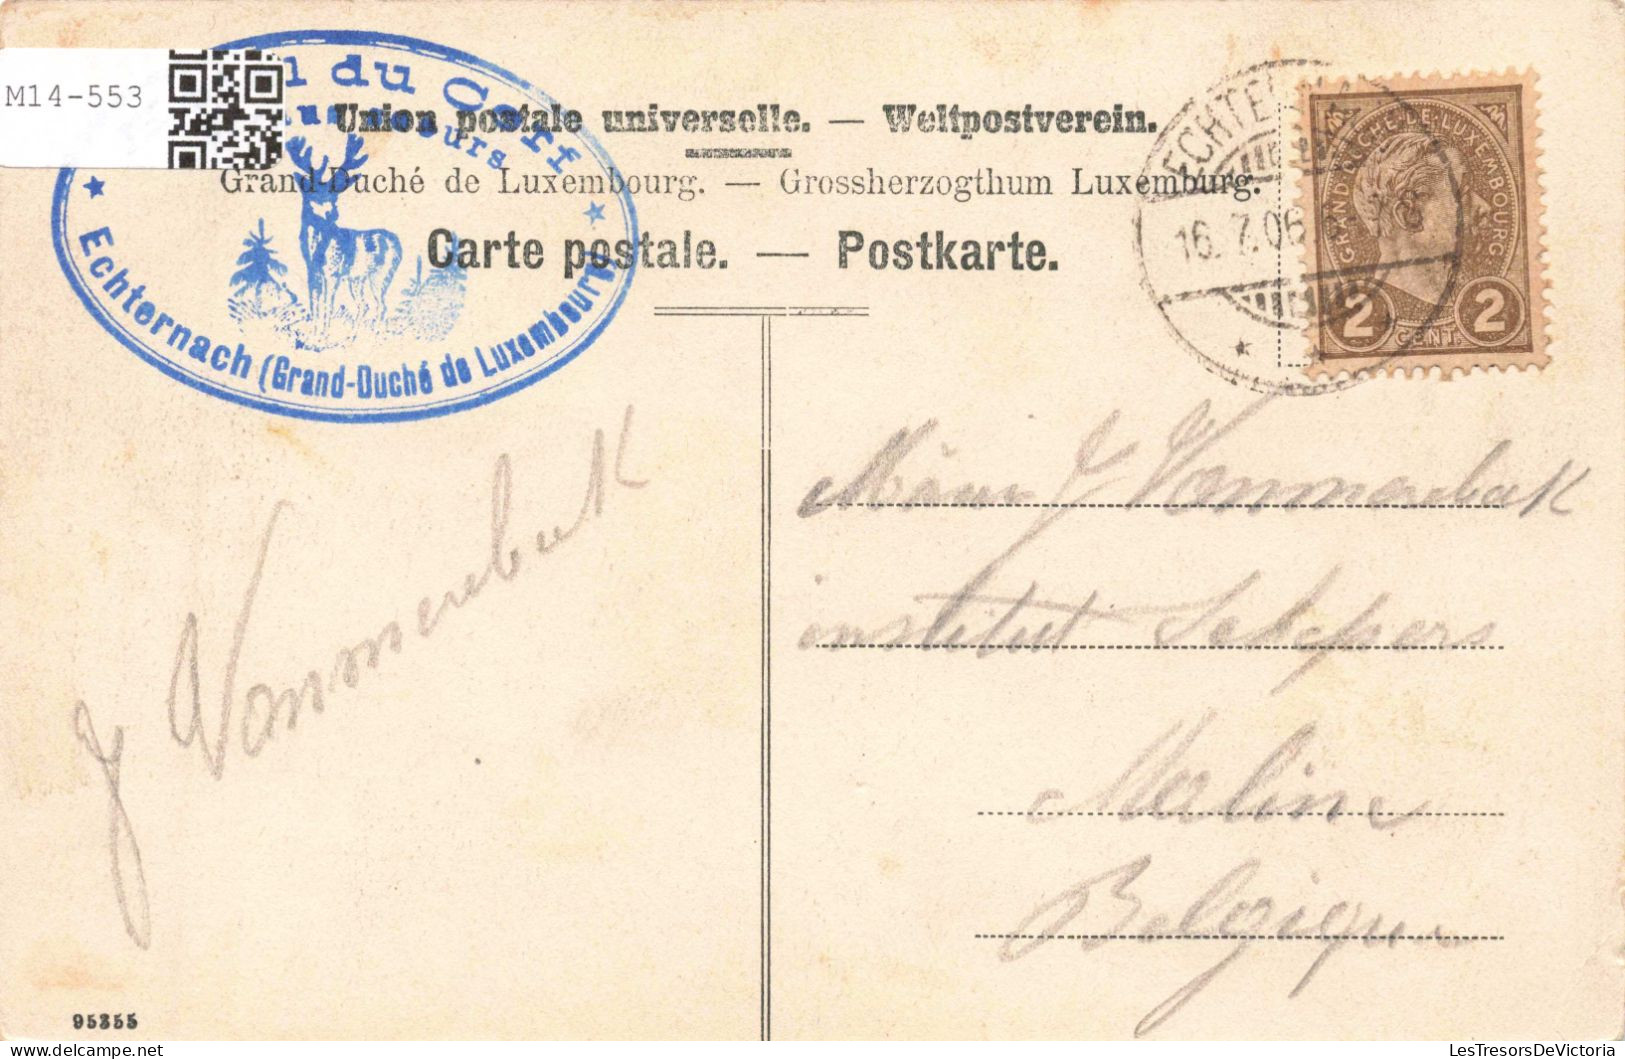 M14-553
du Cerf
Echternach (Grand-Duché de Luxembourg)
Union postale universelle. — Weltpostverein.
Grand-Duché de Luxembourg. — Grossherzogthum Luxemburg.
Carte postale. — Postkarte.
16. 7. 06
GRAND-DUCHÉ DE LUXEMBOURG
2 CENT. 2
J Vanmerebeek
J Vanmerebeek
institut Scheppers
Malines
Belgique
95355
LesTresorsDeVictoria